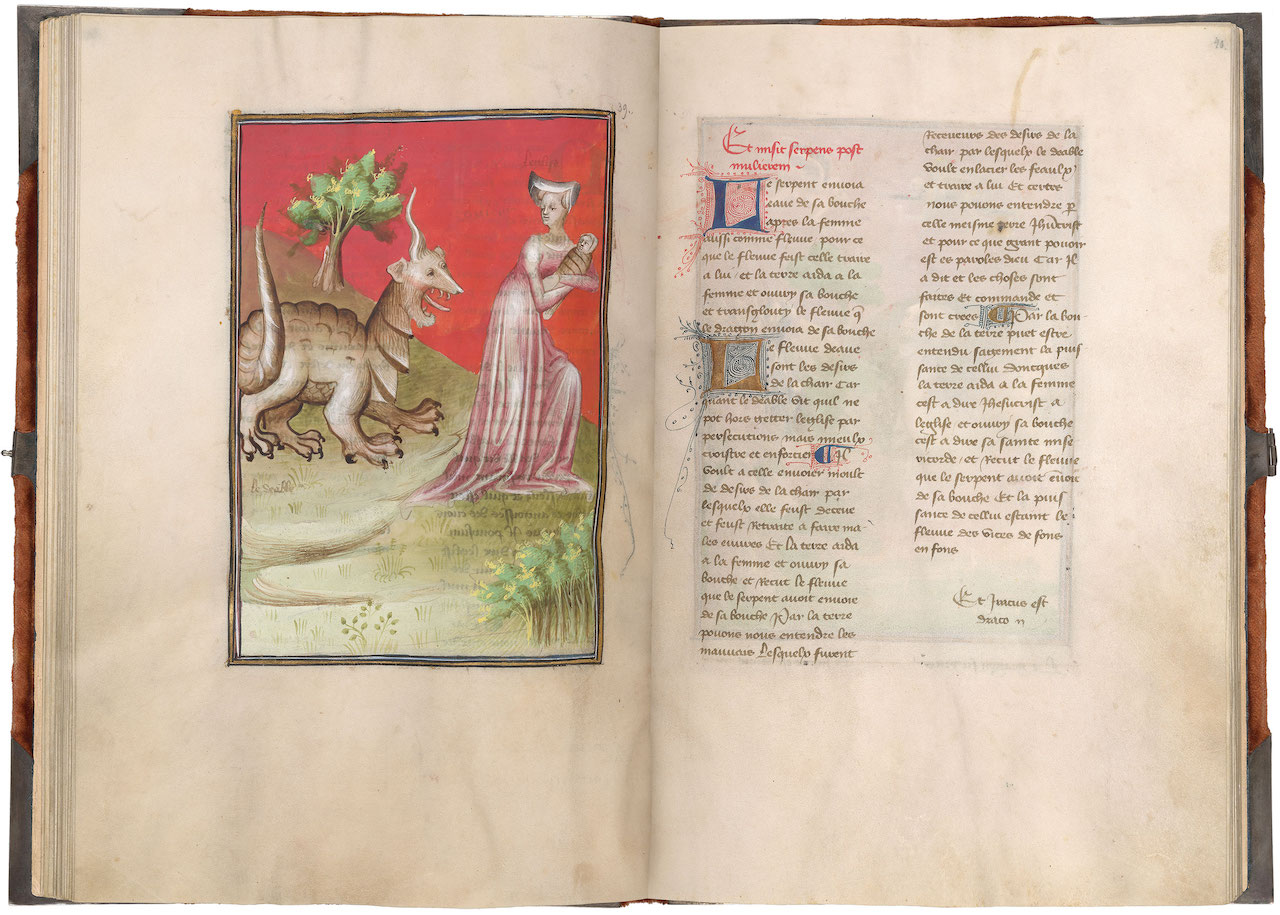 39.
leglise
le deable
Et misit serpens post
mulierem
Le serpent envoia
eaue de sa bouche
apres la femme
aussi comme fleuve pour ce
que le fleuve feist celle traire
a lui et la terre aida a la
femme et ouvry sa bouche
et transglouty le fleuve q̄
le dragon envoia de sa bouche
Le fleuve deaue
sont les desirs
de la chair Car
quant le deable vit quil ne
pot hors getter leglise par
persecutions mais mieulx
croistre et enforcier Il
voult a celle envoier moult
de desirs de la chair par
lesquelx elle feust deceue
et feust retraite a faire ma-
les euvres Et la terre aida
a la femme et ouvry sa
bouche et recut le fleuve
que le serpent avoit envoie
de sa bouche Par la terre
povons nous entendre les
mauvais lesquelx furent
Receveurs des desirs de la
chair par lesquelx le deable
voult enlacier les feaulx
et traire a lui Et certes
nous povons entendre p
celle meisme terre Jhūcrist
et pour ce que grant povoir
est es paroles dieu Car Il
a dit et les choses sont
faites Et commande et
sont crees Par la bou
che de la terre puet estre
entendu sagement la puis
sance de cellui doncques
la terre aida a la femme
cest a dire Jhesucrist a
leglise et ouvry sa bouche
cest a dire sa sainte mise
ricorde et recut le fleuve
que le serpent avoit envoie
de sa bouche Et la puis
sance de cellui estaint le
fleuve des vices de fons
en fons
Et iratus est
draco